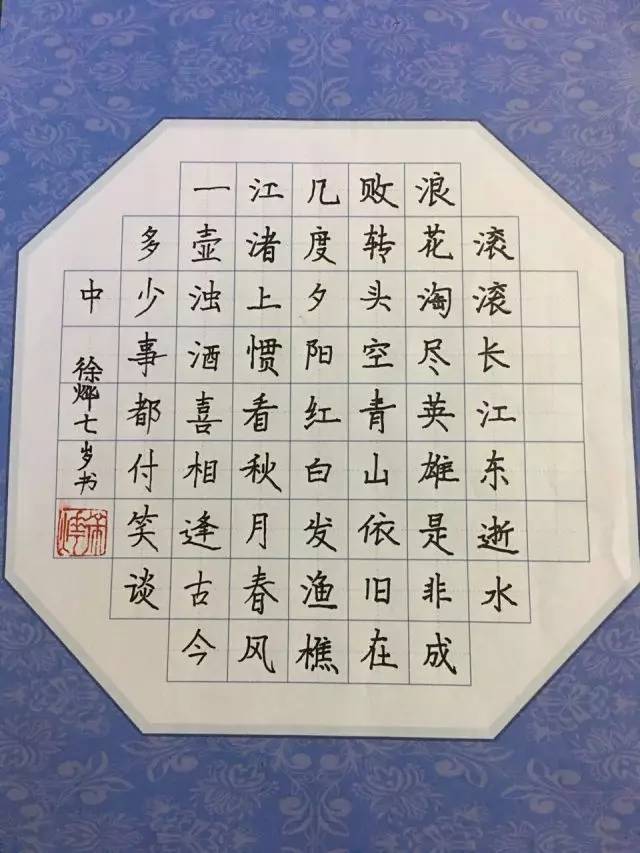 滚滚长江东逝水
浪花淘尽英雄是非成
败转头空青山依旧在
几度夕阳红白发渔樵
江渚上惯看秋月春风
一壶浊酒喜相逢古今
多少事都付笑谈
中
徐烨七岁书